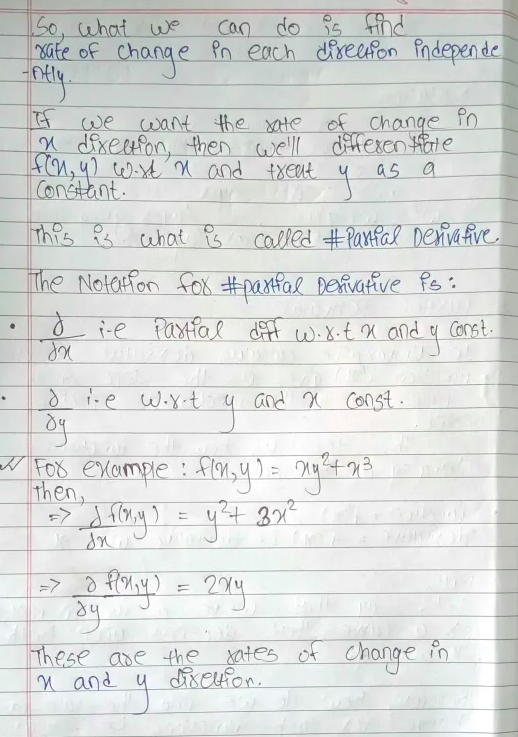 So, what we can do is find
rate of change in each direction independe
-ntly.
If we want the rate of change in
x direction, then we'll differentiate
f(x,y) w.r.t x and treat y as a
constant.
This is what is called #Partial Derivative.
The Notation for #partial Derivative is:
• ∂/∂x i-e Partial diff w.r.t x and y const.
• ∂/∂y i-e w.r.t y and x const.
For example : f(x,y) = xy²+x³
then,
=> ∂f(x,y)/∂x = y²+ 3x²
=> ∂f(x,y)/∂y = 2xy
These are the rates of change in
x and y direction.